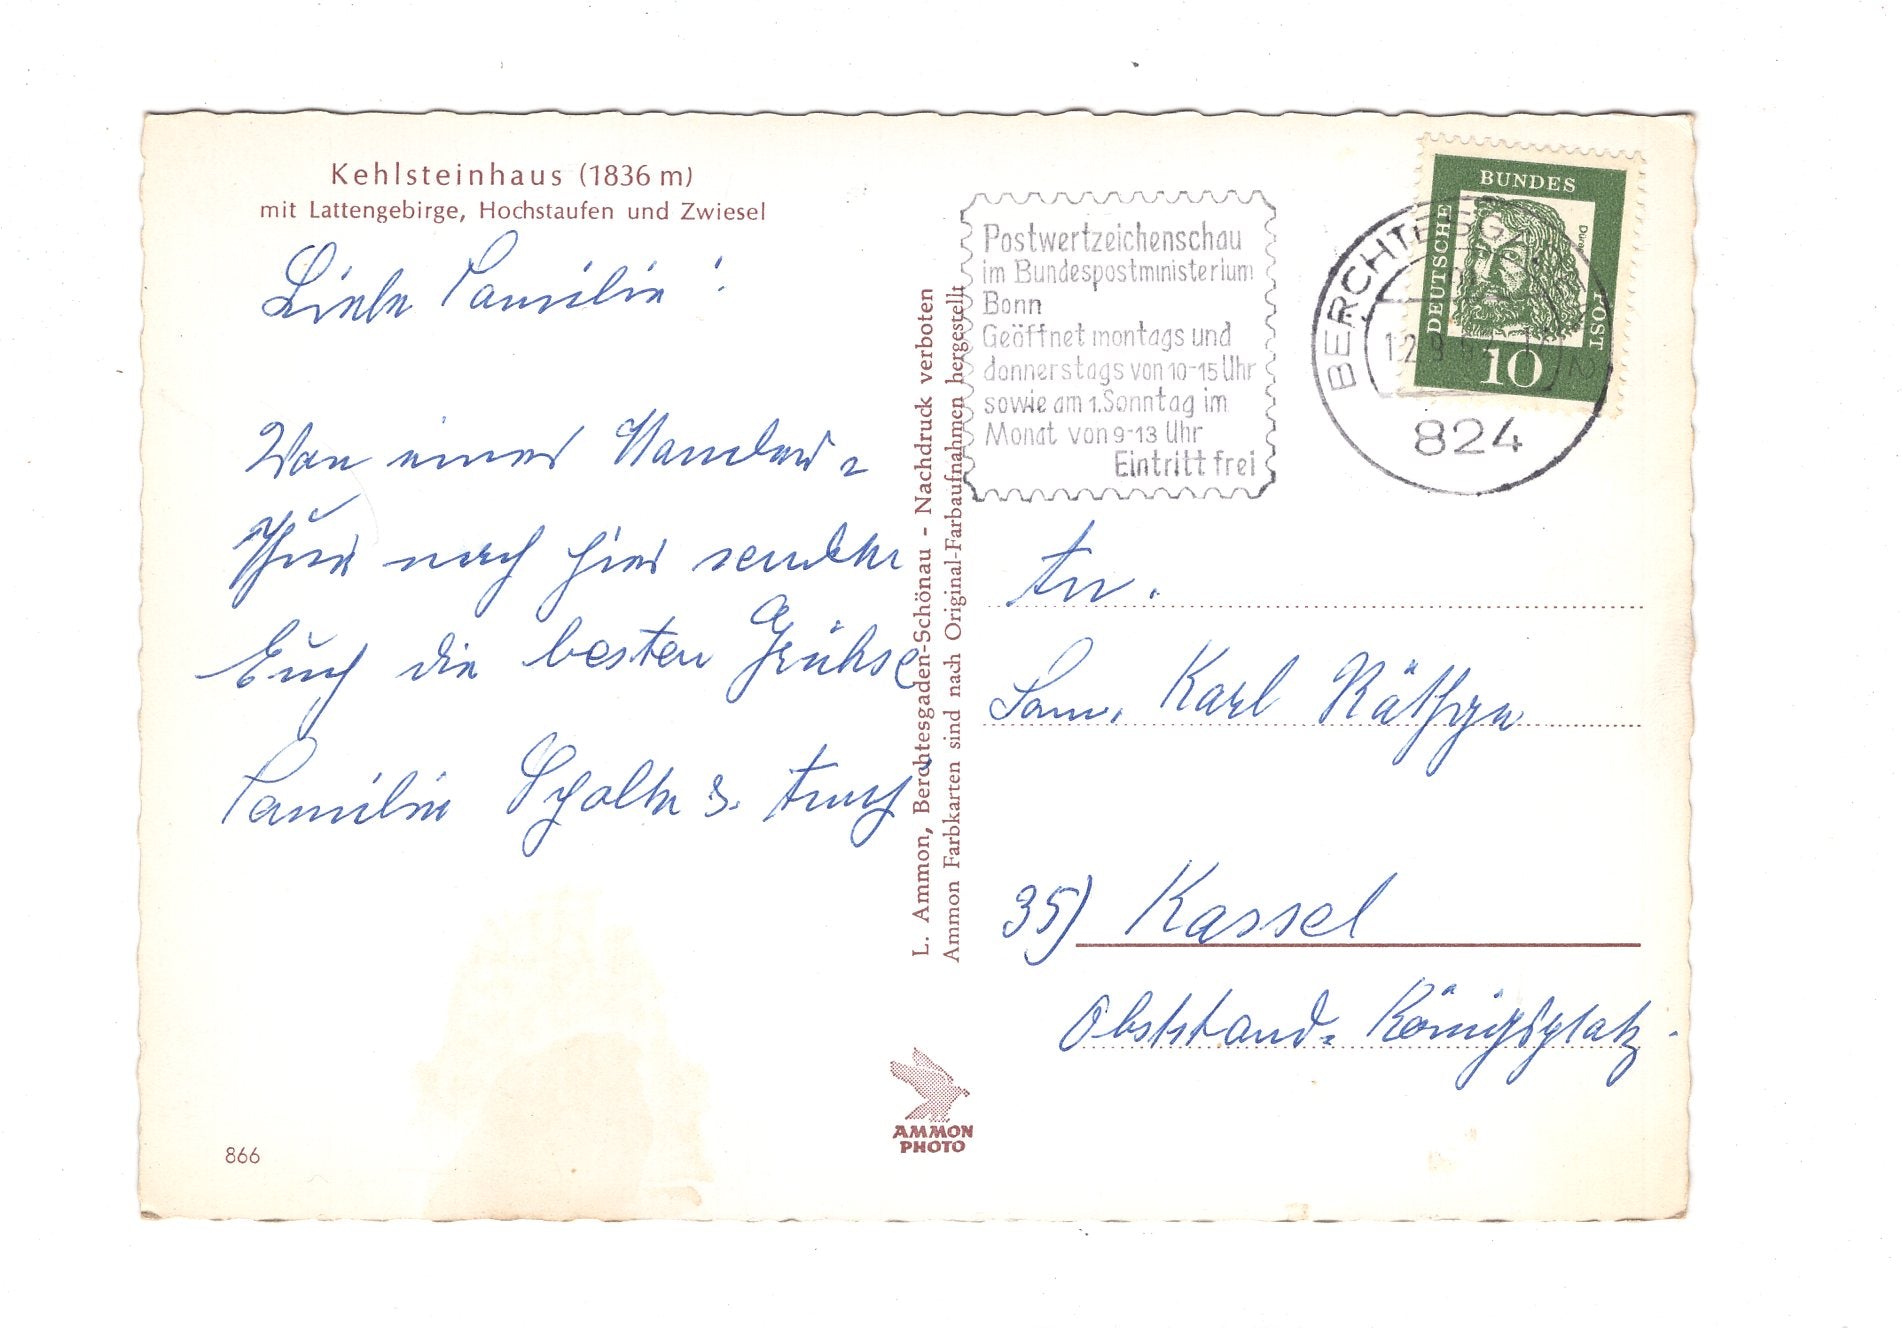 Kehlsteinhaus (1836 m)
mit Lattengebirge, Hochstaufen und Zwiesel
Liebe Familie!
Von einer Wander-
nach hier senden
Euch die besten Grühse
Familie
L. Ammon, Berchtesgaden-Schönau - Nachdruck verboten
Ammon Farbkarten sind nach Original-Farbaufnahmen hergestellt
866
AMMON
PHOTO
Postwertzeichenschau
im Bundespostministerium
Bonn
Geöffnet montags und
donnerstags von 10-15 Uhr
sowie am 1. Sonntag im
Monat von 9-13 Uhr
Eintritt frei
BERCHTESGADEN
824
DEUTSCHE BUNDESPOST
Dürer
10
An.
Fam. Karl Räthge
35) Kassel
Obststand- Königsplatz.